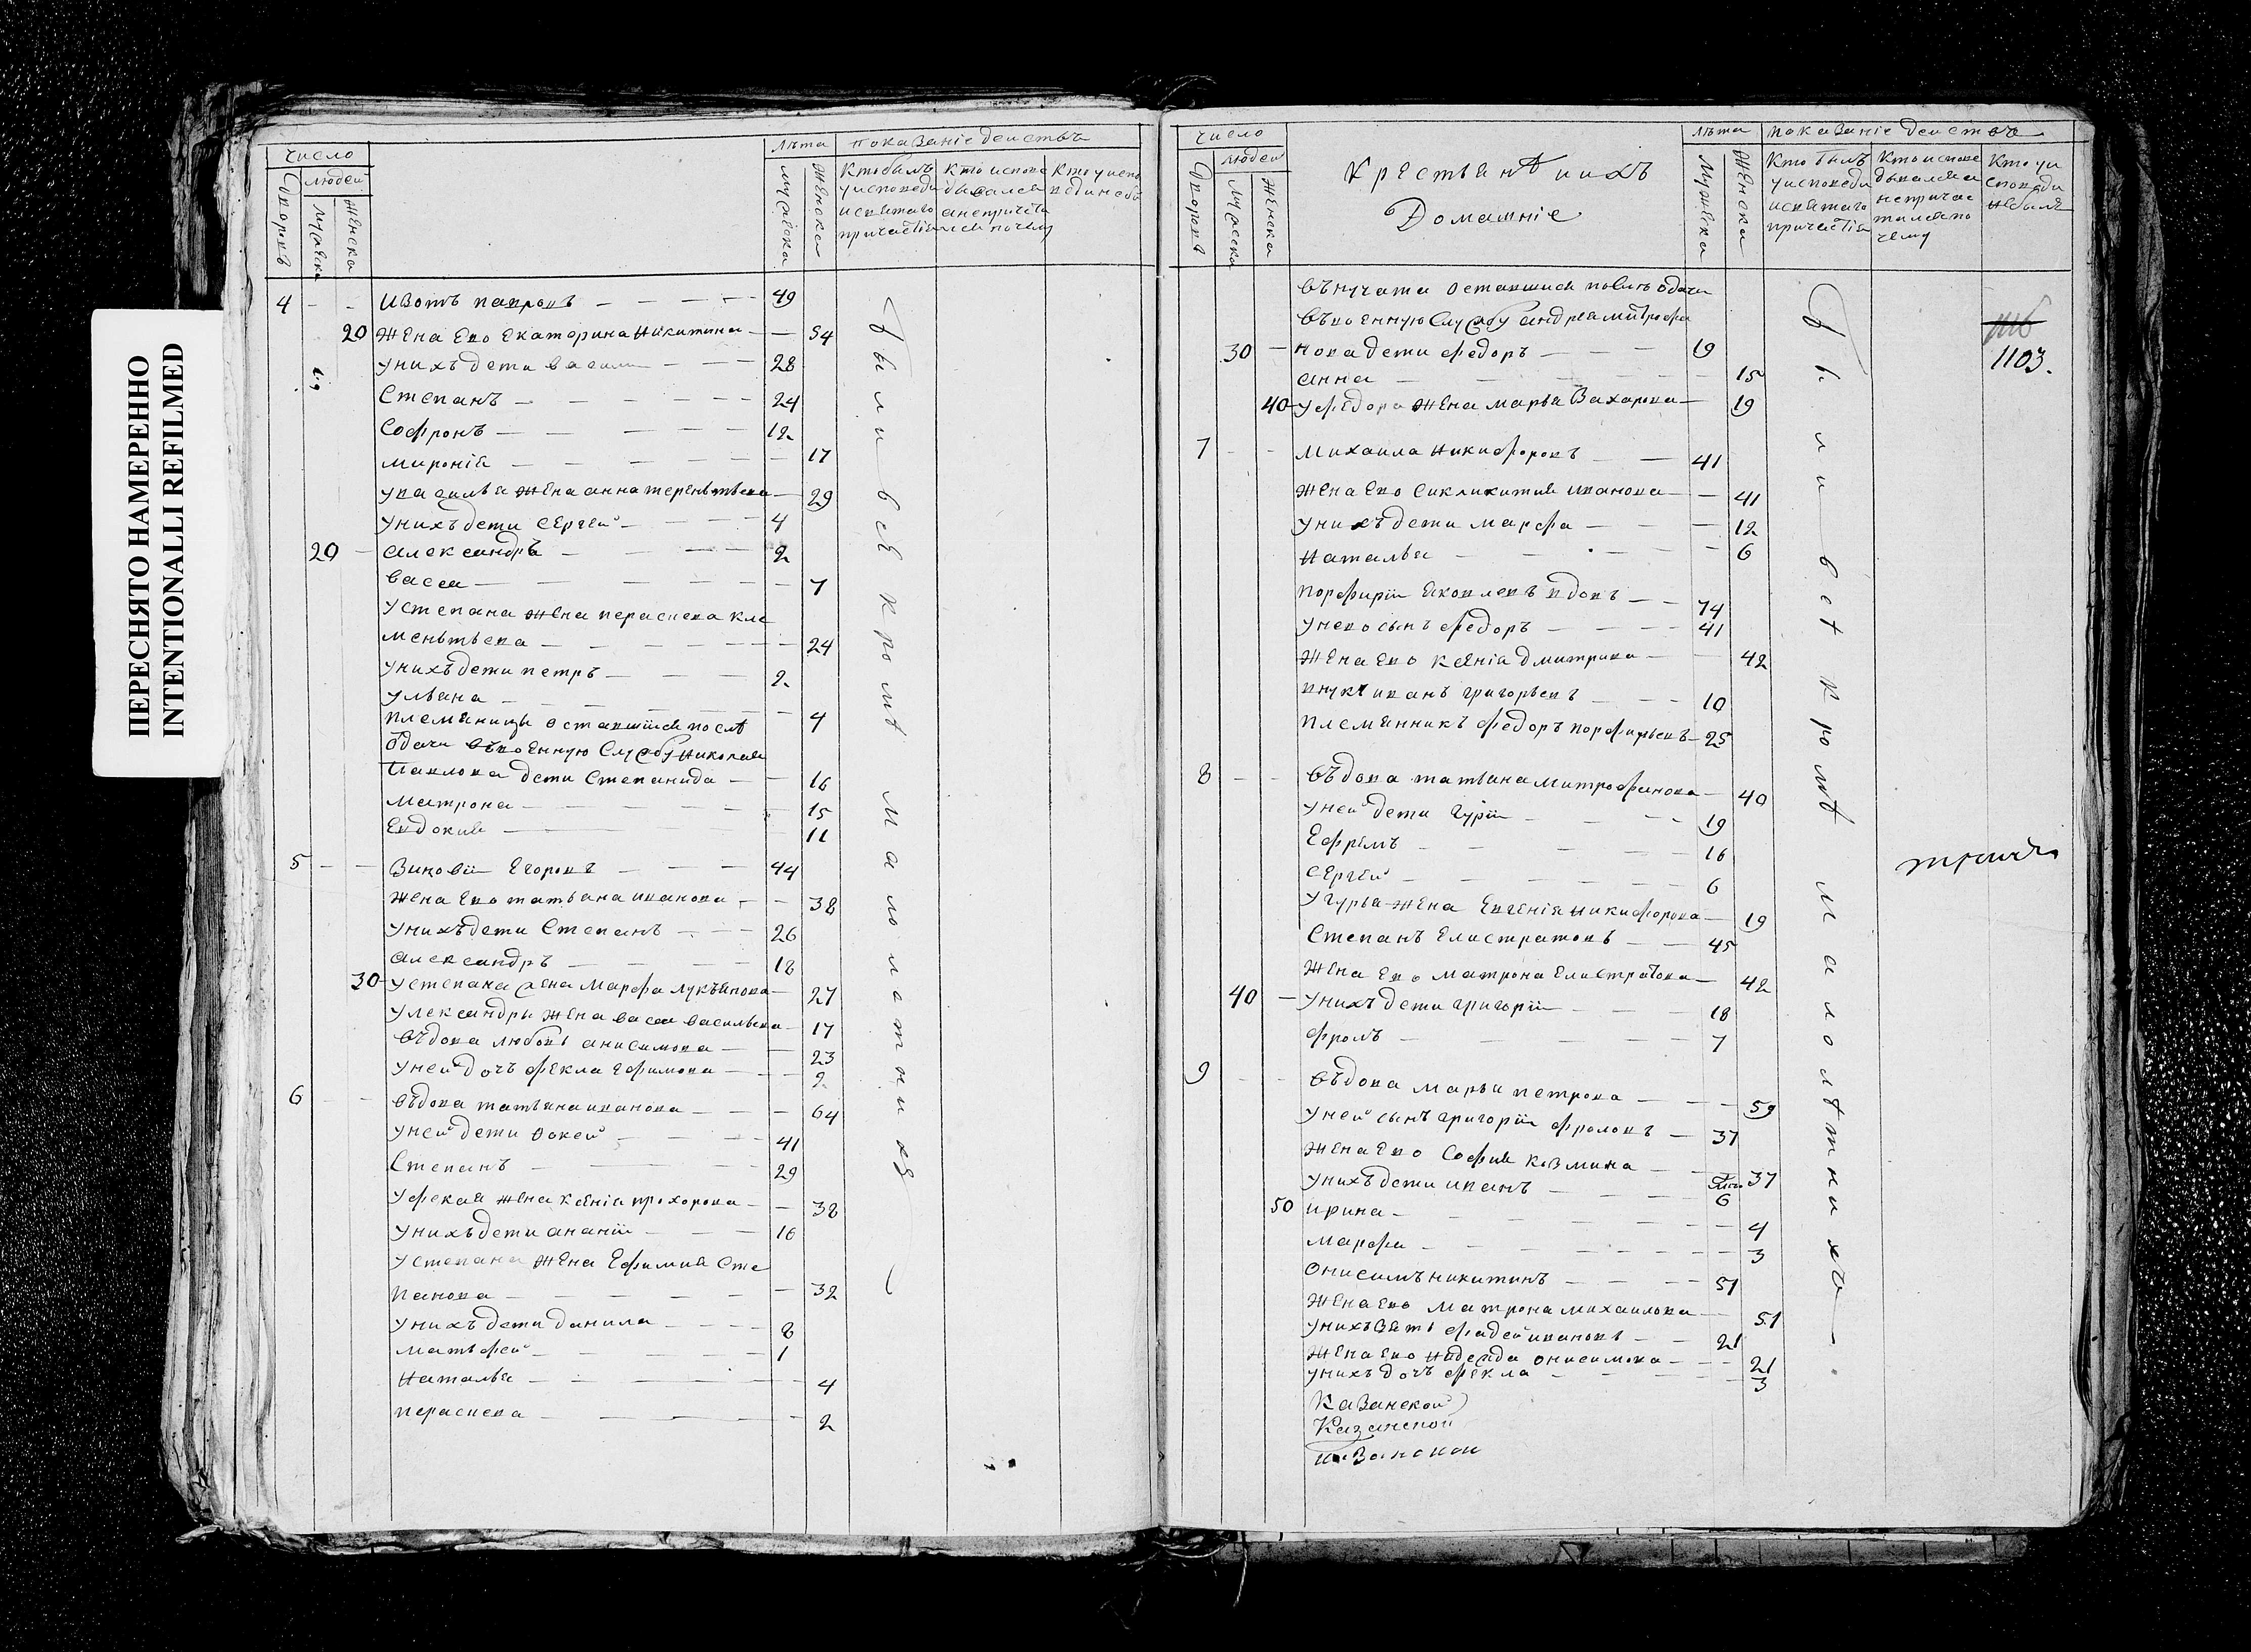 ПЕРЕСНЯТО НАМЕРЕННО
INTENTIONALLI REFILMED
число
людей
Дворовъ
Мужеска
Женска
лѣта
Мужеска
Женска
показаніе действъ
Кто былъ
у исповеди
и святаго
причастія
Кто испове
дывался
а непричаща
лся почему
Кто у испо
веди небы
4 - - Изотъ павловъ - 49
20 жена ево Екатерина никитина - 54
у нихъ дети василий - 28
Степанъ - 24
Софронъ - 12
миронія - 17
у василья жена анна терентьтьева - 29
у нихъ дети сергей - 4
20 - александръ - 2
васса - 7
у степана жена параскева кле
ментьева - 24
у нихъ дети петръ - 2
ульяна - 4
племяницы оставшіися послѣ
одачи въвоенную службу николая
павлова дети Степанида - 16
матрона - 15
Евдокия - 11
5 - - Зиновій Егоровъ - 44
жена ево татьяна иванова - 38
у нихъ дети Степанъ - 26
александръ - 18
30 - у степана жена марфа лукьянова - 27
у лександры жена васса васильева - 17
въдова любовь анисимова - 23
у ней дочь фекла ефимова - 2
6 - - въдова татьяна иванова - 64
у ней дети фокей - 41
Степанъ - 29
у фокая жена ксенія прохорова - 38
у нихъ дети ананій - 16
у степана жена Ефимия Сте
панова - 32
у нихъ дети данила - 8
матьфей - 1
наталья - 4
параскева - 2
были все кромѣ малолетнихъ
число
людей
Дворовъ
Мужеска
Женска
Крестьянѣ и ихъ
Домашніе
лѣта
Мужеска
Женска
показаніе действъ
Кто былъ
у исповеди
и святаго
причастія
Кто испове
дывался а
непричас
тился по
чему
Кто у и
споведи
небылъ
1103.
вънучата оставшися
въвоенную Службу андрея митрофа
30 - нова дети федоръ - 19
анна - 15
40 - у федора жена марья Захарова - 19
7 - - михаила никифоровъ - 41
жена ево сикликития иванова - 41
у нихъ дети марфа - 12
наталья - 6
порфирий яковлевъ вдовъ - 74
у нево сынъ федоръ - 41
жена ево ксенія дмитрива - 42
внукъ иванъ григорьевъ - 10
племянникъ федоръ порфирьевъ - 25
8 - - въдова татьяна митрофанова - 40
у ней дети гурій - 19
Ефрѣмъ - 16
сергей - 6
у гурья жена Евгенія никифорова - 19
Степанъ Елистратовъ - 45
жена ево матрона Елистратова - 42
40 - у нихъ дети григорій - 18
фролъ - 7
9 - - въдова марья петрова - 59
у ней сынъ григорій фроловъ - 37
жена ево София козмина - 37
у нихъ дети иванъ - 6
50 ирина - 4
марфа - 3
онисимъ никитинъ - 51
жена ево матрона михаилова - 51
у нихъ зять фадей ивановъ - 21
жена ево надежда онисимова - 21
у нихъ дочь фекла - 3
Казанской
Казанской
были всѣ кромѣ малолѣтнихъ